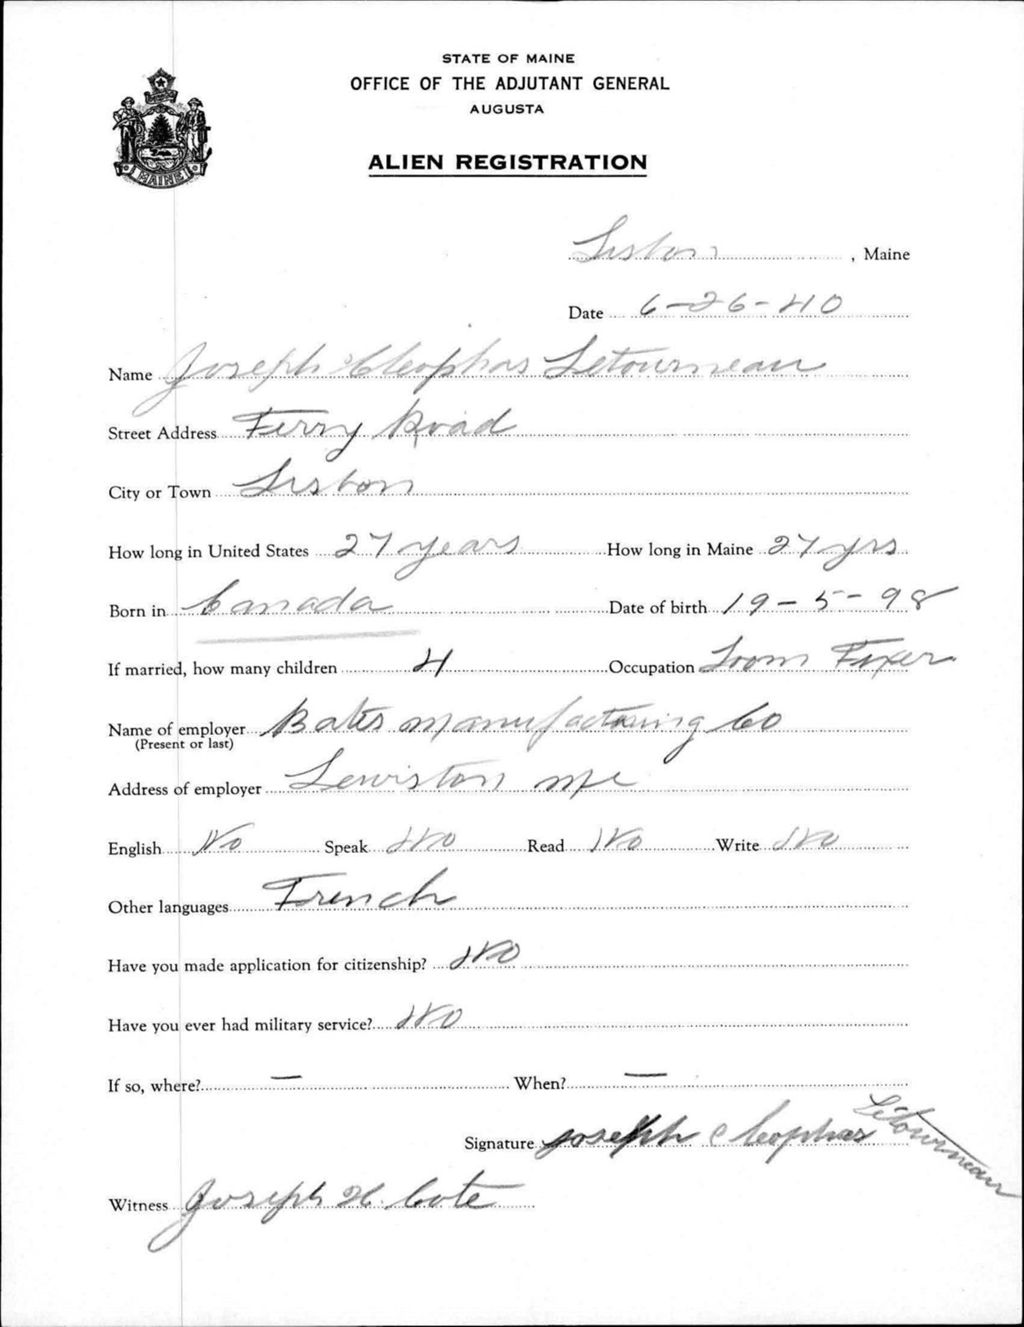 STATE OF MAINE
OFFICE OF THE ADJUTANT GENERAL
AUGUSTA
ALIEN REGISTRATION
MAINE
Lisbon, Maine
Date 6-26-40
Name Joseph Cleophas Letourneau
Street Address Ferry Road
City or Town Lisbon
How long in United States 27 years How long in Maine 27 yrs
Born in Canada Date of birth 19-5-98
If married, how many children 4 Occupation Loom Fixer
Name of employer Bates Manufacturing Co
(Present or last)
Address of employer Lewiston Me
English No Speak No Read No Write No
Other languages French
Have you made application for citizenship? No
Have you ever had military service? No
If so, where? — When? —
Signature Joseph Cleophas Letourneau
Witness Joseph H. Cote